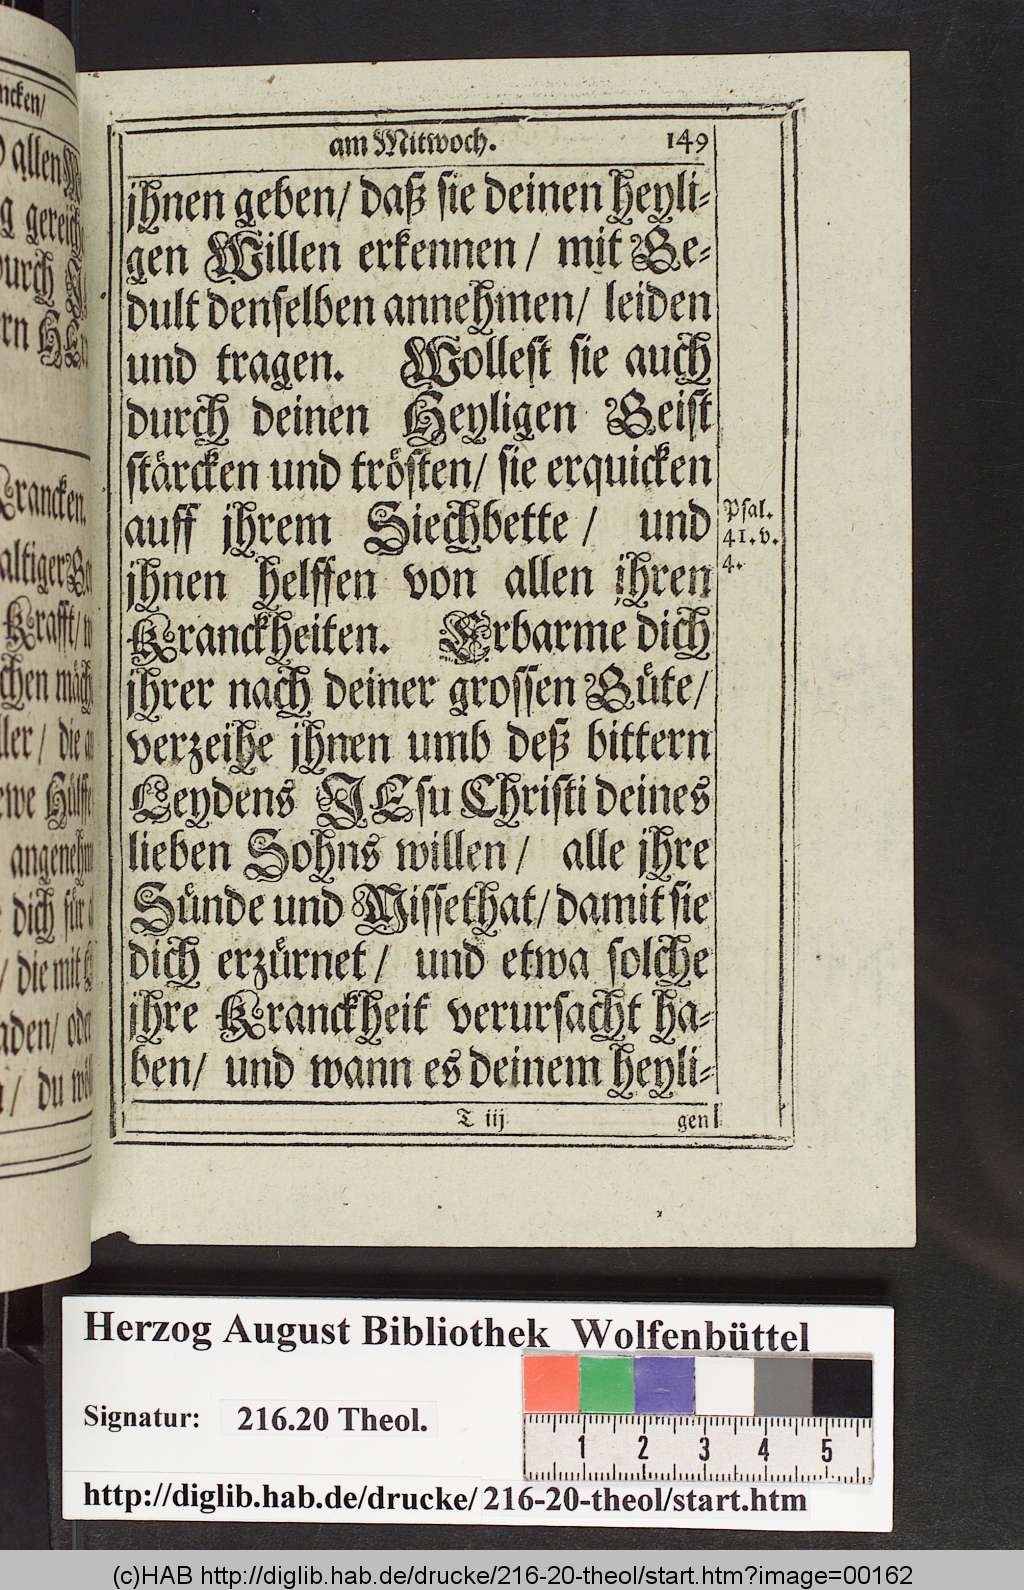 am Mitwoch. 149
jhnen geben/ daß sie deinen heyli-
gen Willen erkennen/ mit Ge-
dult denselben annehmen/ leiden
und tragen. Wollest sie auch
durch deinen Heyligen Geist
stärcken und trösten/ sie erquicken
auff jhrem Siechbette/ und
jhnen helffen von allen ihren
Kranckheiten. Erbarme dich
jhrer nach deiner grossen Güte/
verzeihe jhnen umb deß bittern
Leydens JEsu Christi deines
lieben Sohns willen/ alle jhre
Sünde und Missethat/ damit sie
dich erzürnet/ und etwa solche
jhre Kranckheit verursacht ha-
ben/ und wann es deinem heyli-
T iij
gen
Psal.
41.v.
4.
ncken/
allen
gereich
durch
Krancken.
altiger
Krafft/
chen mäch
ller/ die
ewe Hülffe
angenehm
dich für
/ die mit
aden/ oder
/ du
Herzog August Bibliothek Wolfenbüttel
Signatur: 216.20 Theol.
1 2 3 4 5
http://diglib.hab.de/drucke/216-20-theol/start.htm
(c)HAB http://diglib.hab.de/drucke/216-20-theol/start.htm?image=00162